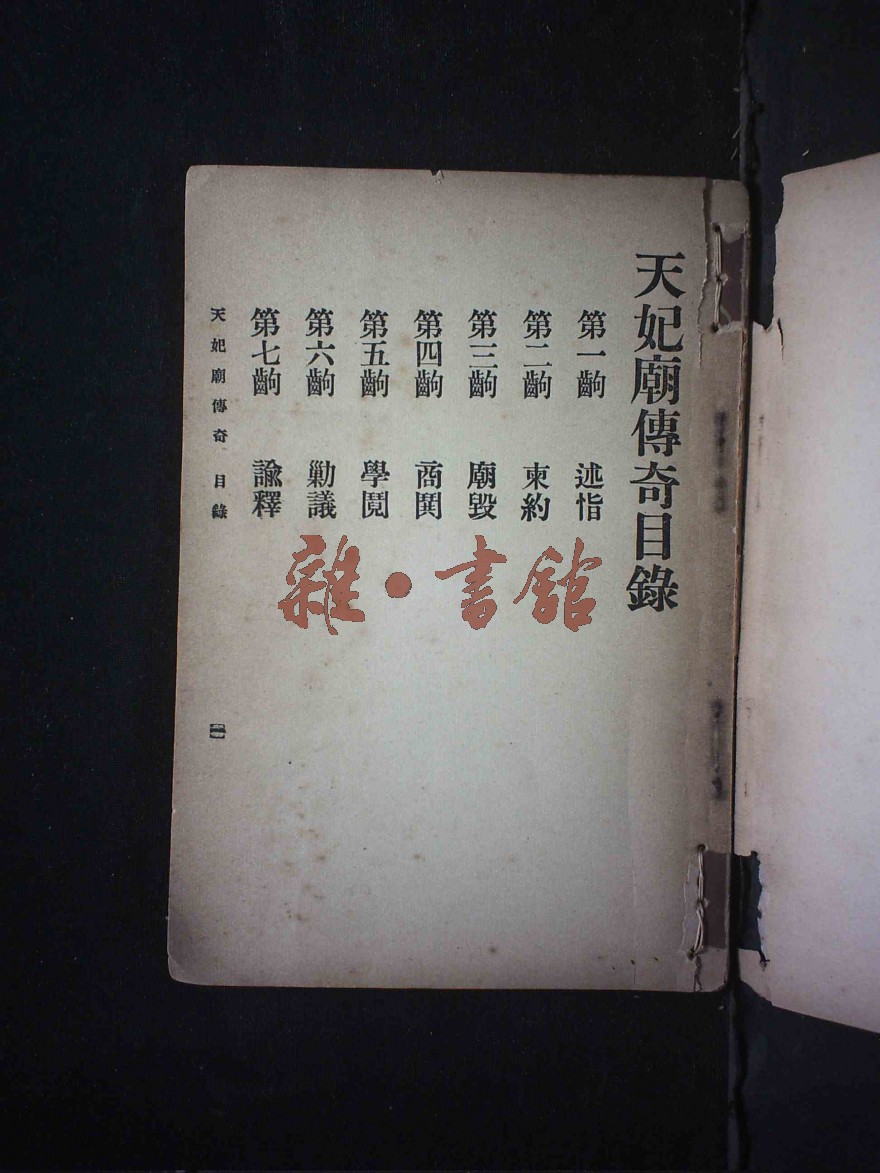 天妃廟傳奇目錄
第一齣 述恉
第二齣 柬約
第三齣 廟毀
第四齣 商鬨
第五齣 學鬩
第六齣 勦議
第七齣 諭釋
天妃廟傳奇 目錄
雜·書館